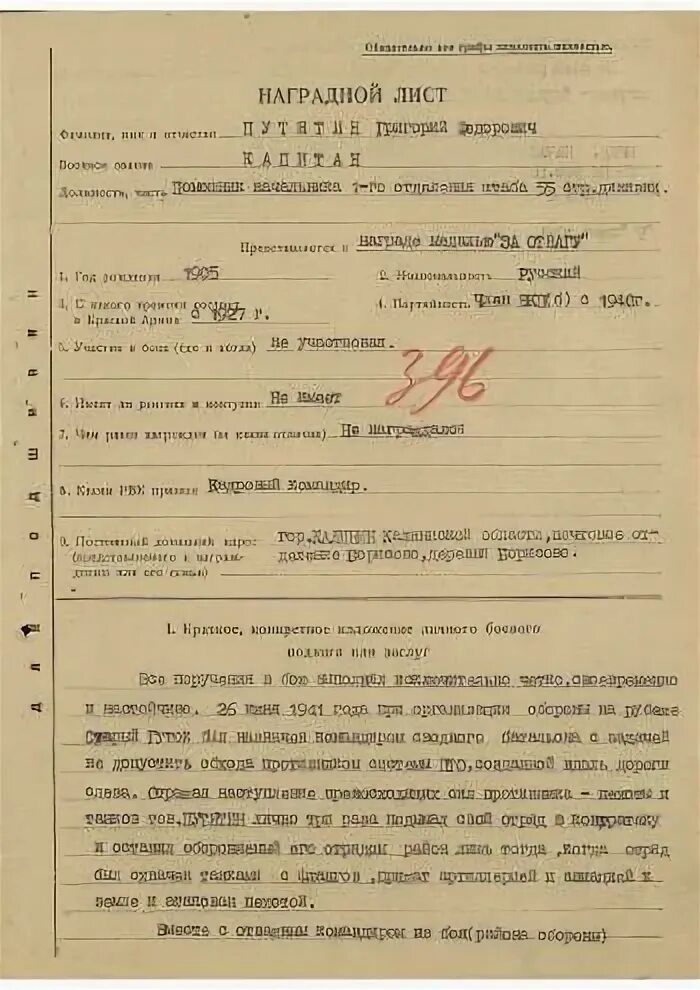 Обязательно все графы заполнять полностью.
НАГРАДНОЙ ЛИСТ
Фамилия, имя и отчество ПУТЯТИН Григорий Федорович
КАПИТАН
Должность, часть Помощник начальника 1-го отделения штаба 55 стр.дивизии.
Представляется к награде медалью "ЗА ОТВАГУ"
1. Год рождения 1905
2. Национальность русский
3. С какого времени состоит
в Красной Армии с 1927 г.
4. Партийность Член ВКП(б) с 1940г.
5. Участие в боях (где и когда) не участвовал.
396
6. Имеет ли ранения и контузии Не имеет
7. Чем ранее награжден (за какие отличия) Не награждался
8. Каким РВК призван Кадровый командир.
9. Постоянный домашний адрес: гор.КАЛИНИН Калининской области, почтовое от-
(представляемого к награж- деление Борисово, деревня Борисово.
дению или его семьи)
Для подшивки
I. Краткое, конкретное изложение личного боевого
подвига или заслуг
Все поручения в бою выполнял исключительно четко, своевременно
и настойчиво. 26 июня 1941 года при организации обороны на рубеже
Старый был назначен командиром сводного батальона с задачей
не допустить обхода противником системы ПТО, созданной вдоль дороги
слева. Отражая наступление превосходящих сил противника - пехоты и
танков тов.ПУТЯТИН лично три раза поднимал свой отряд в контратаку
и оставил обороняемый его отрядом район лишь тогда, когда отряд
был охвачен танками с флангов, прижат артиллерией и авиацией к
земле и атакован пехотой.
Вместе с отважным командиром на бой(района обороны)